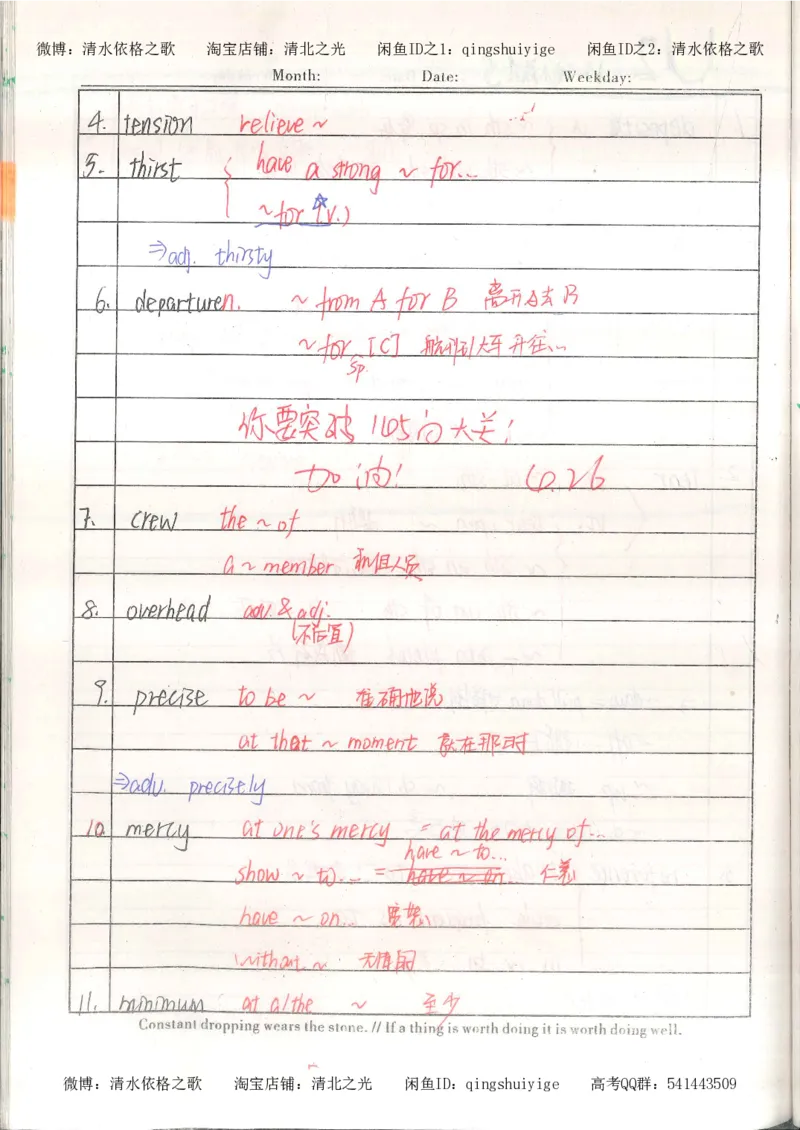 微博：清水依格之歌 淘宝店铺：清北之光 闲鱼ID之1：qingshuiyige 闲鱼ID之2：清水依格之歌
Month: Date: Weekday:
4. tension relieve ~
5. thirst have a strong ~ for...
~ for (v.)
⇒adj. thirsty
6. departure n. ~ from A for B 离开A去B
~ for [C] 开往...
sp.
你要突破 大关!
加油!
7. crew the ~ of
a ~ member 机组人员
8. overhead adv. & adj.
9. precise to be ~ 准确地说
at that ~ moment 就在那时
⇒adv. precisely
10. mercy at one's mercy = at the mercy of...
have ~ to...
show ~ to... = have ~ on... 仁慈
have ~ on...
without ~
11. minimum at a/the ~ 至少
Constant dropping wears the stone. // If a thing is worth doing it is worth doing well.
微博：清水依格之歌 淘宝店铺：清北之光 闲鱼ID：qingshuiyige 高考QQ群：541443509